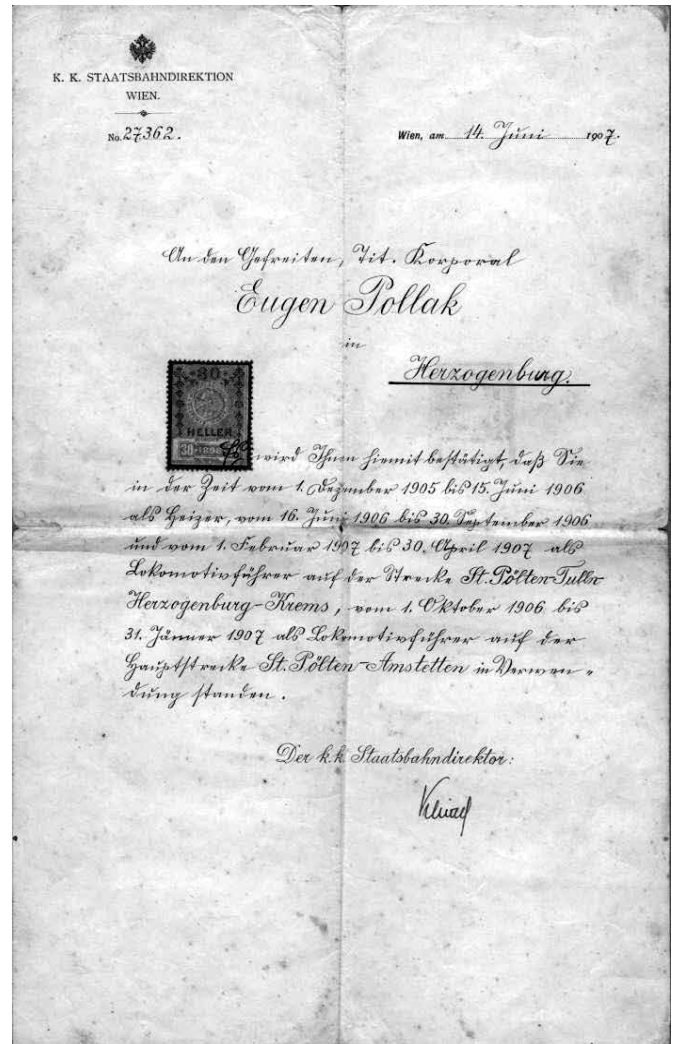 K. K. STAATSBAHNDIREKTION
WIEN.
No. 27362.
Wien, am 14. Juni 1907.
An den Gefreiten, Tit. Korporal
Eugen Pollak
in
Herzogenburg.
30
HELLER
30 1898
wird Ihnen hiemit bestätigt, daß Sie
in der Zeit vom 1. Dezember 1905 bis 15. Juni 1906
als Heizer, vom 16. Juni 1906 bis 30. September 1906
und vom 1. Februar 1907 bis 30. April 1907 als
Lokomotivführer auf der Strecke St. Pölten-Tulln-
Herzogenburg-Krems, vom 1. Oktober 1906 bis
31. Jänner 1907 als Lokomotivführer auf der
Hauptstrecke St. Pölten-Amstetten in Verwen-
dung standen.
Der k.k. Staatsbahndirektor: